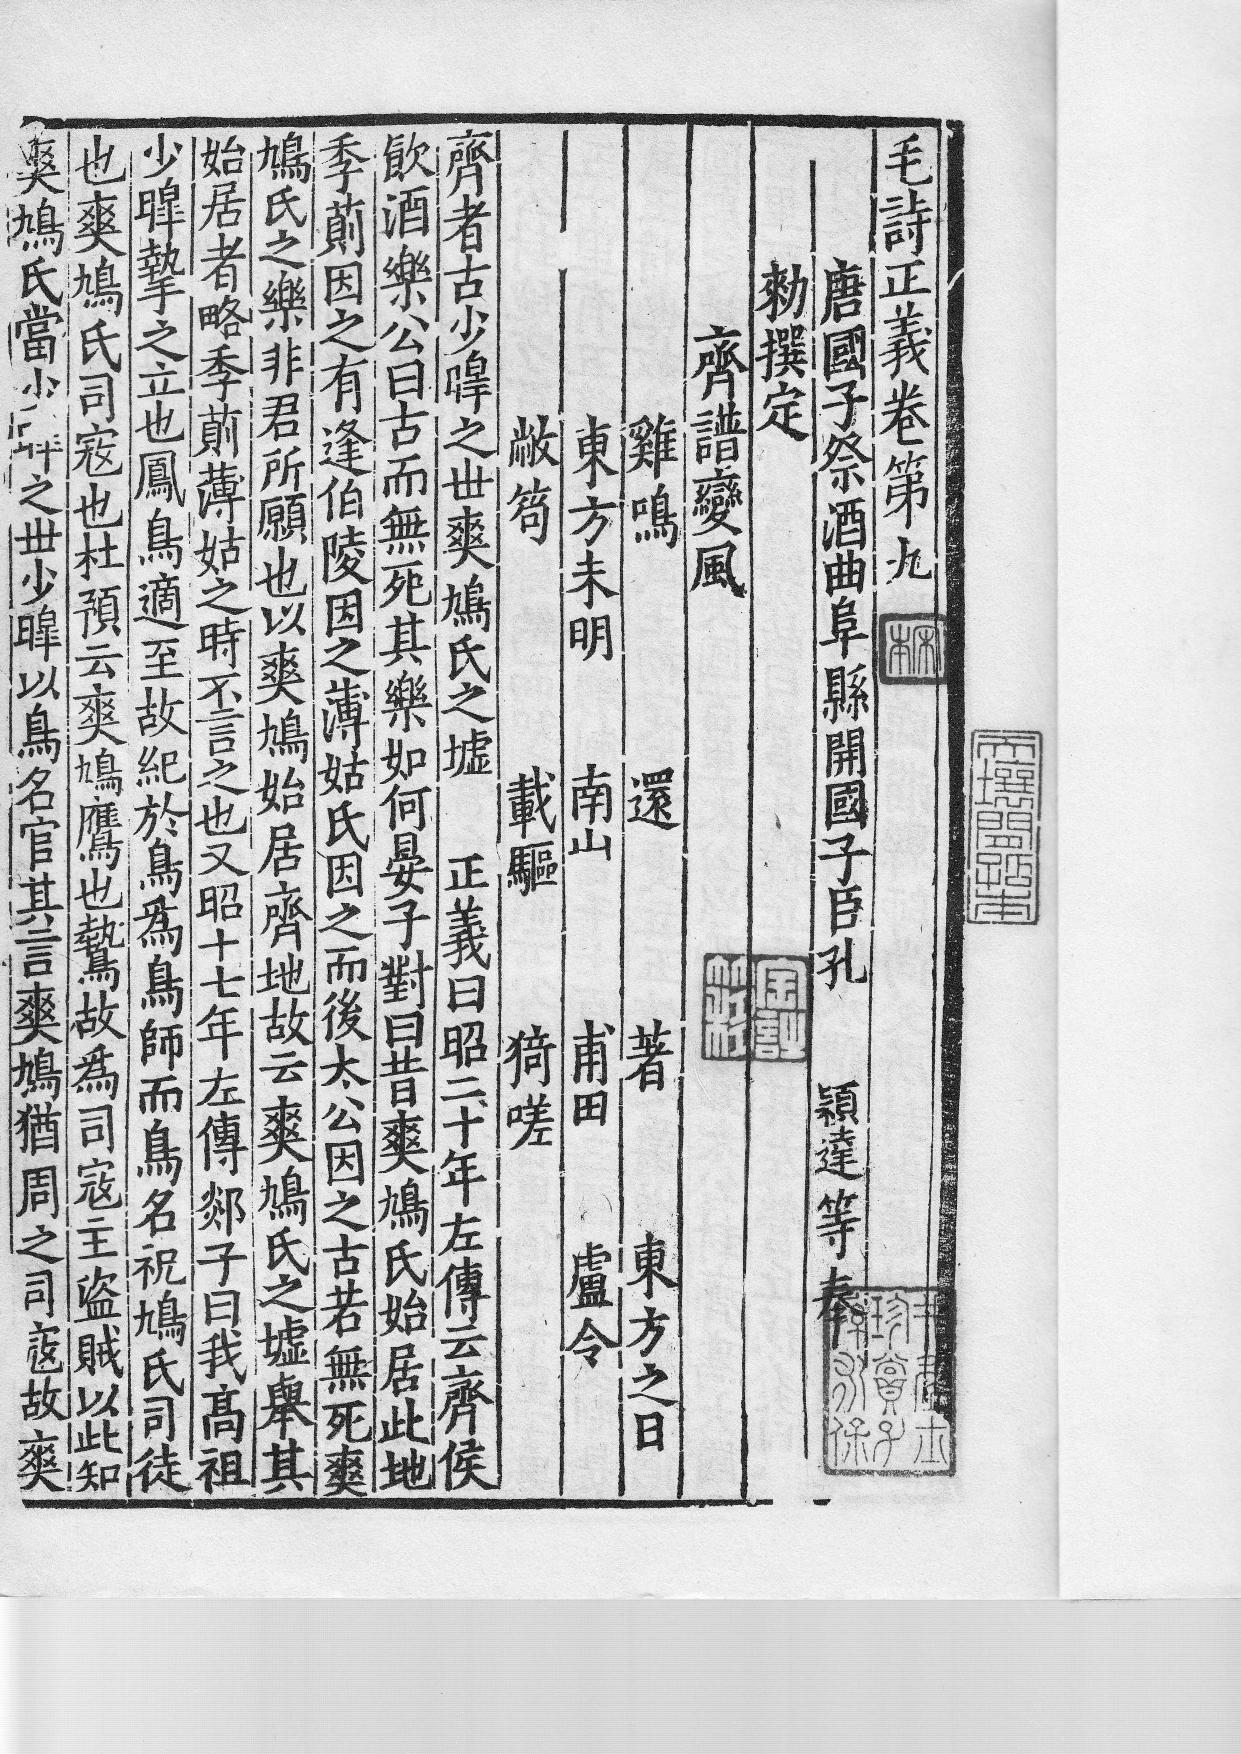 毛詩正義卷第九
唐國子祭酒曲阜縣開國子臣孔　穎達等奉
勑撰定
齊譜變風
雞鳴　還　著　東方之日
東方未明　南山　甫田　盧令
敝笱　載驅　猗嗟
齊者古少皥之世爽鳩氏之墟　正義曰昭二十年左傳云齊侯
飲酒樂公曰古而無死其樂如何晏子對曰昔爽鳩氏始居此地
季萴因之有逢伯陵因之薄姑氏因之而後太公因之古若無死爽
鳩氏之樂非君所願也以爽鳩始居齊地故云爽鳩氏之墟舉其
始居者略季萴薄姑之時不言之也又昭十七年左傳郯子曰我髙祖
少皥摯之立也鳳鳥適至故紀於鳥爲鳥師而鳥名祝鳩氏司徒
也爽鳩氏司寇也杜預云爽鳩鷹也鷙故爲司寇主盜賊以此知
爽鳩氏當少皥之世少皥以鳥名官其言爽鳩猶周之司寇故爽
宋本